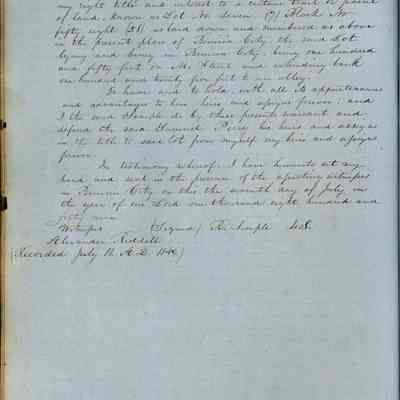 my right title and interest to a certain tract or parcel
of land, known as Lot No Seven (7) Block No
fifty eight (58) as laid down and numbered as above
in the present plan of Benicia City, the said Lot
lying and being in Benicia City, being one hundred
and fifty feet on M. Street and extending back
one hundred and twenty five feet to an alley.
To have and to hold, with all its appurtenances
and advantages to him heirs and assigns forever; and
I the said Semple do by these presents warrant and
defend the said Samuel Perry his heirs and assigns
in the title to said Lot from myself my heirs and assigns
forever.
In testimony whereof I have hereunto set my
hand and seal in the presence of the subscribing witnesses
in Benicia City on this the seventh day of July in
the year of our Lord one thousand eight hundred and
forty nine
Witness (Signed) R. Semple
Alexander Riddell
(Recorded July 11 A.D. 1849)